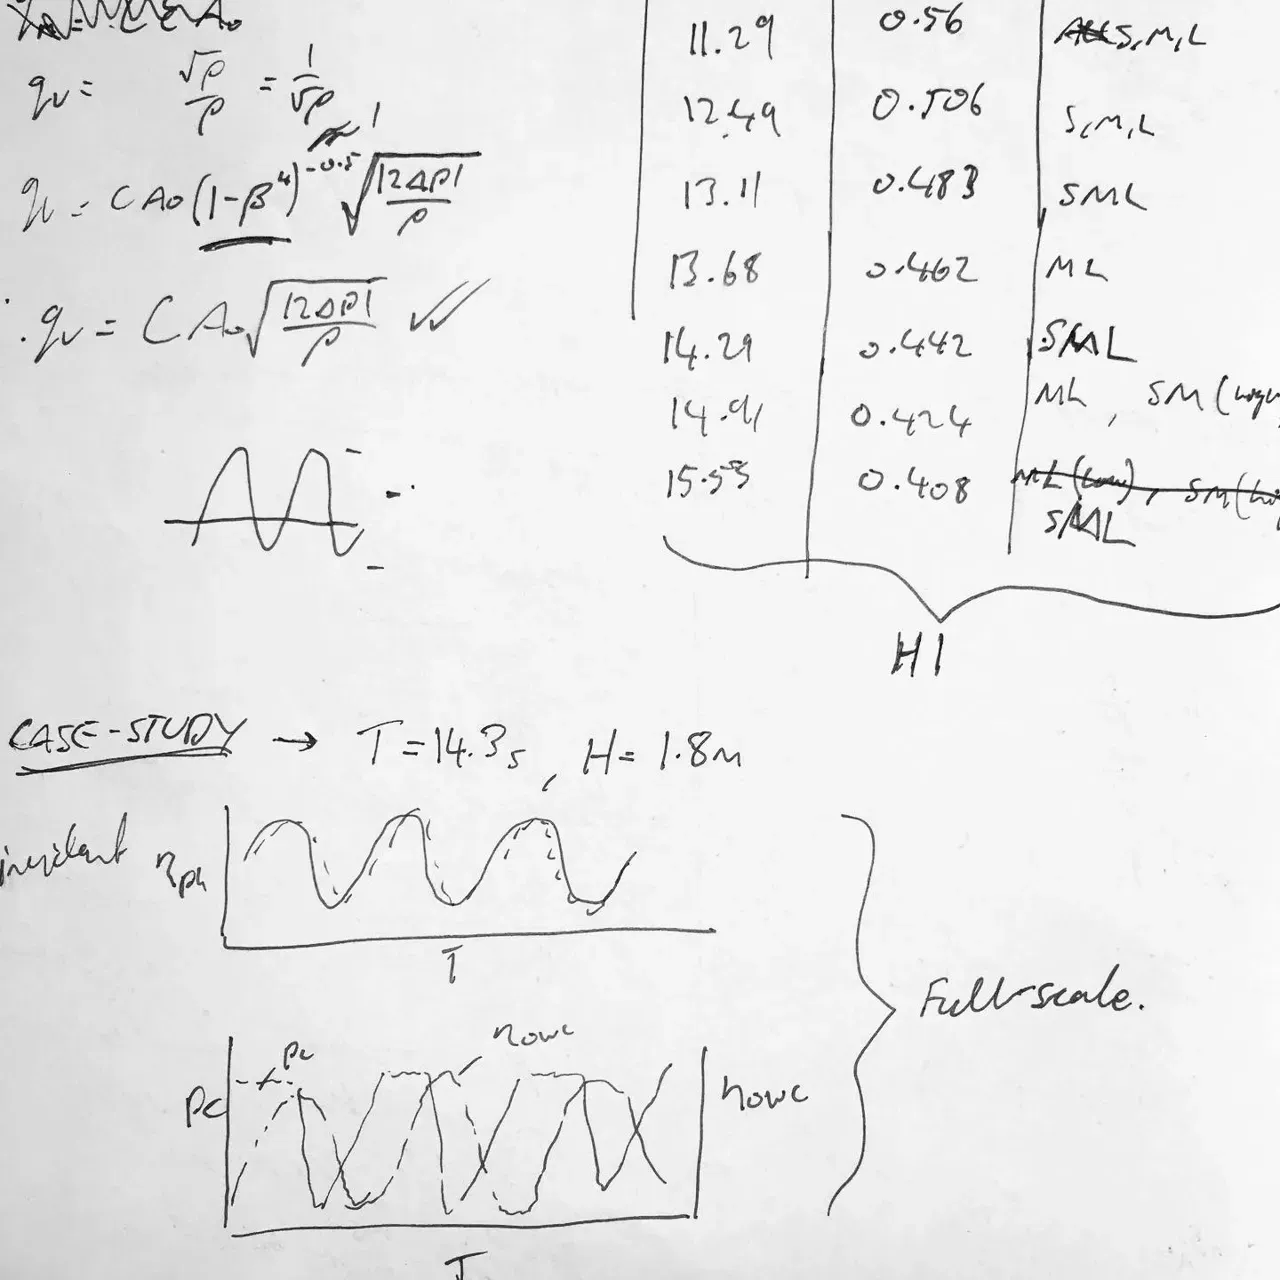 qv = √ρ/ρ = 1/√ρ
1
qv = CAo(1-β⁴)^-0.5 √|2ΔP|/ρ
∴ qv = CAo√|2ΔP|/ρ ✓✓
11.29 0.56 S,M,L
12.49 0.506 S,M,L
13.11 0.483 SML
13.68 0.462 ML
14.29 0.442 SML
14.91 0.424 ML, SM
15.53 0.408 ML (low), SM
SML
H1
CASE-STUDY → T=14.3s, H=1.8m
incident ηph
T
Full-scale.
Pc
ηowc
Pc
ηowc
T